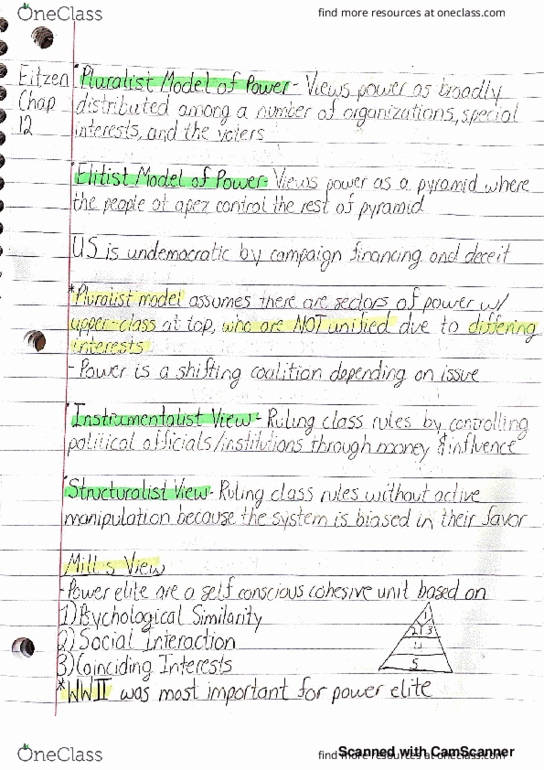 OneClass
find more resources at oneclass.com
Eitzen
Chap
12
Pluralist Model of Power- Views power as broadly
distributed among a number of organizations, special
interests, and the voters
Elitist Model of Power- Views power as a pyramid where
the people at apex control the rest of pyramid
US is undemocratic by campaign financing and deceit
*Pluralist model assumes there are sectors of power w/
upper-class at top, who are NOT unified due to differing
interests
-Power is a shifting coalition depending on issue
Instrumentalist View- Ruling class rules by controlling
political officials/institutions through money & influence
Structuralist View- Ruling class rules without active
manipulation because the system is biased in their favor
Mill's View
-Power elite are a self conscious cohesive unit based on
1) Psychological Similarity
2) Social Interaction
3) Coinciding Interests
1
2 3
4
5
*WWII was most important for power elite
OneClass
find more resources at oneclass.com
Scanned with CamScanner